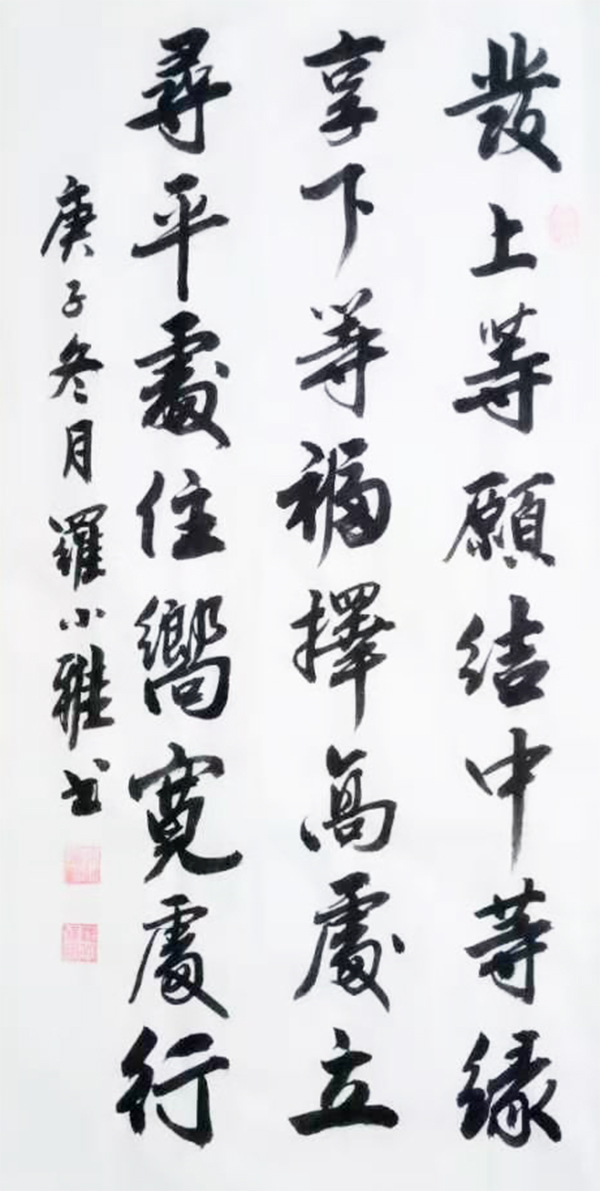 發上等願結中等緣
享下等福擇高處立
尋平處住嚮寬處行
庚子冬月羅小雅书